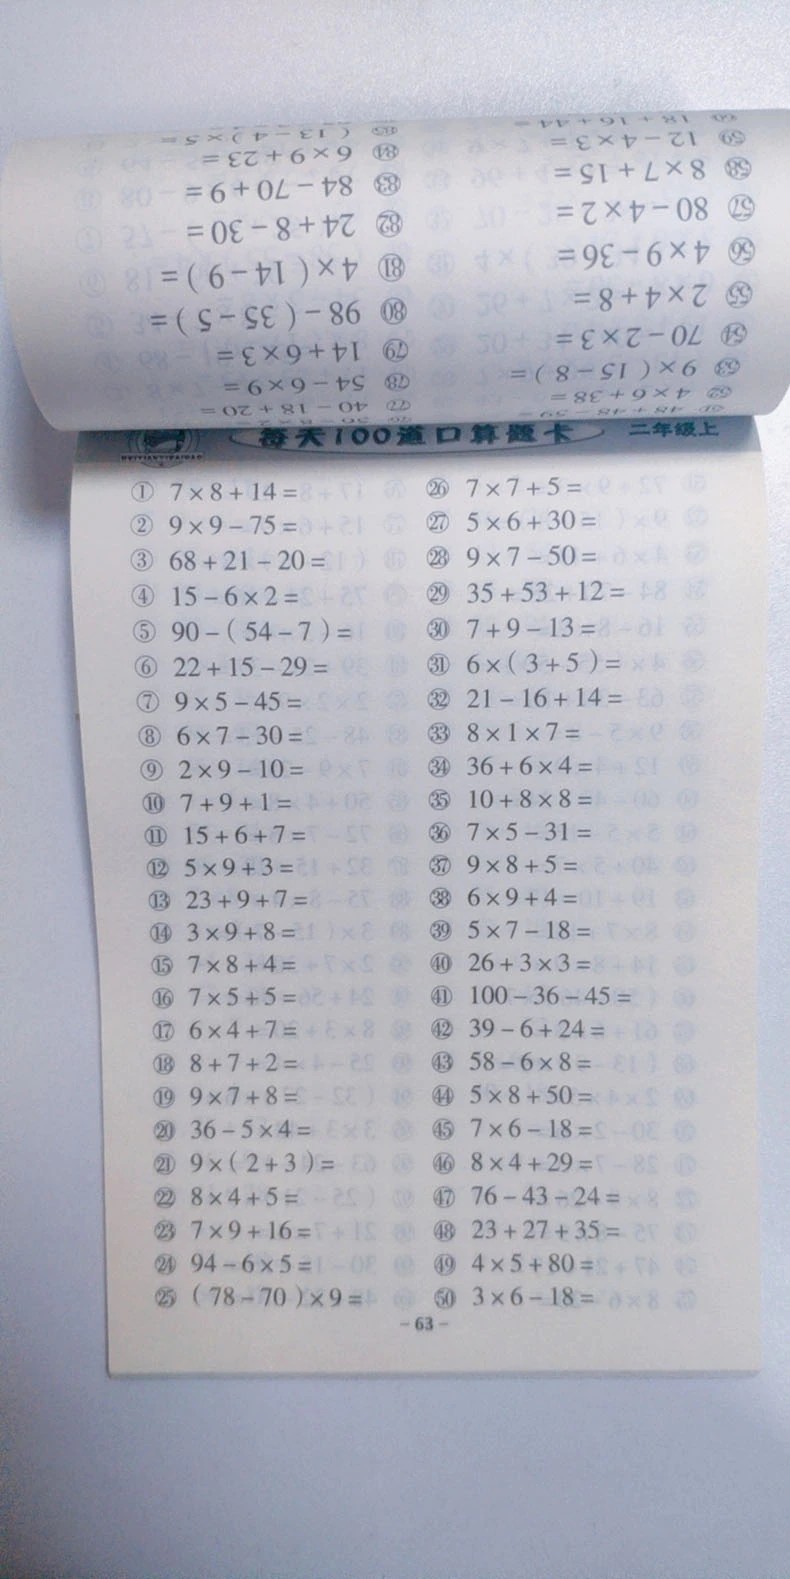 60 18+16+44=
59 12-4×3=
58 8×7+15=
57 80-4×2=
56 4×9-36=
55 2×4+8=
54 70-2×3=
53 9×(15-8)=
52 4×6+38=
85 (13-4)×5=
84 6×9+23=
83 84-70+9=
82 24+8-30=
81 4×(14-9)=
80 98-(35-5)=
79 14+6×3=
78 54-6×9=
77 40-18+20=
每天100道口算题卡 二年级上
① 7×8+14=
② 9×9-75=
③ 68+21-20=
④ 15-6×2=
⑤ 90-(54-7)=
⑥ 22+15-29=
⑦ 9×5-45=
⑧ 6×7-30=
⑨ 2×9-10=
⑩ 7+9+1=
⑪ 15+6+7=
⑫ 5×9+3=
⑬ 23+9+7=
⑭ 3×9+8=
⑮ 7×8+4=
⑯ 7×5+5=
⑰ 6×4+7=
⑱ 8+7+2=
⑲ 9×7+8=
⑳ 36-5×4=
㉑ 9×(2+3)=
㉒ 8×4+5=
㉓ 7×9+16=
㉔ 94-6×5=
㉕ (78-70)×9=
㉖ 7×7+5=
㉗ 5×6+30=
㉘ 9×7-50=
㉙ 35+53+12=
㉚ 7+9-13=
㉛ 6×(3+5)=
㉜ 21-16+14=
㉝ 8×1×7=
㉞ 36+6×4=
㉟ 10+8×8=
㊱ 7×5-31=
㊲ 9×8+5=
㊳ 6×9+4=
㊴ 5×7-18=
㊵ 26+3×3=
㊶ 100-36-45=
㊷ 39-6+24=
㊸ 58-6×8=
㊹ 5×8+50=
㊺ 7×6-18=
㊻ 8×4+29=
㊼ 76-43-24=
㊽ 23+27+35=
㊾ 4×5+80=
㊿ 3×6-18=
-63-